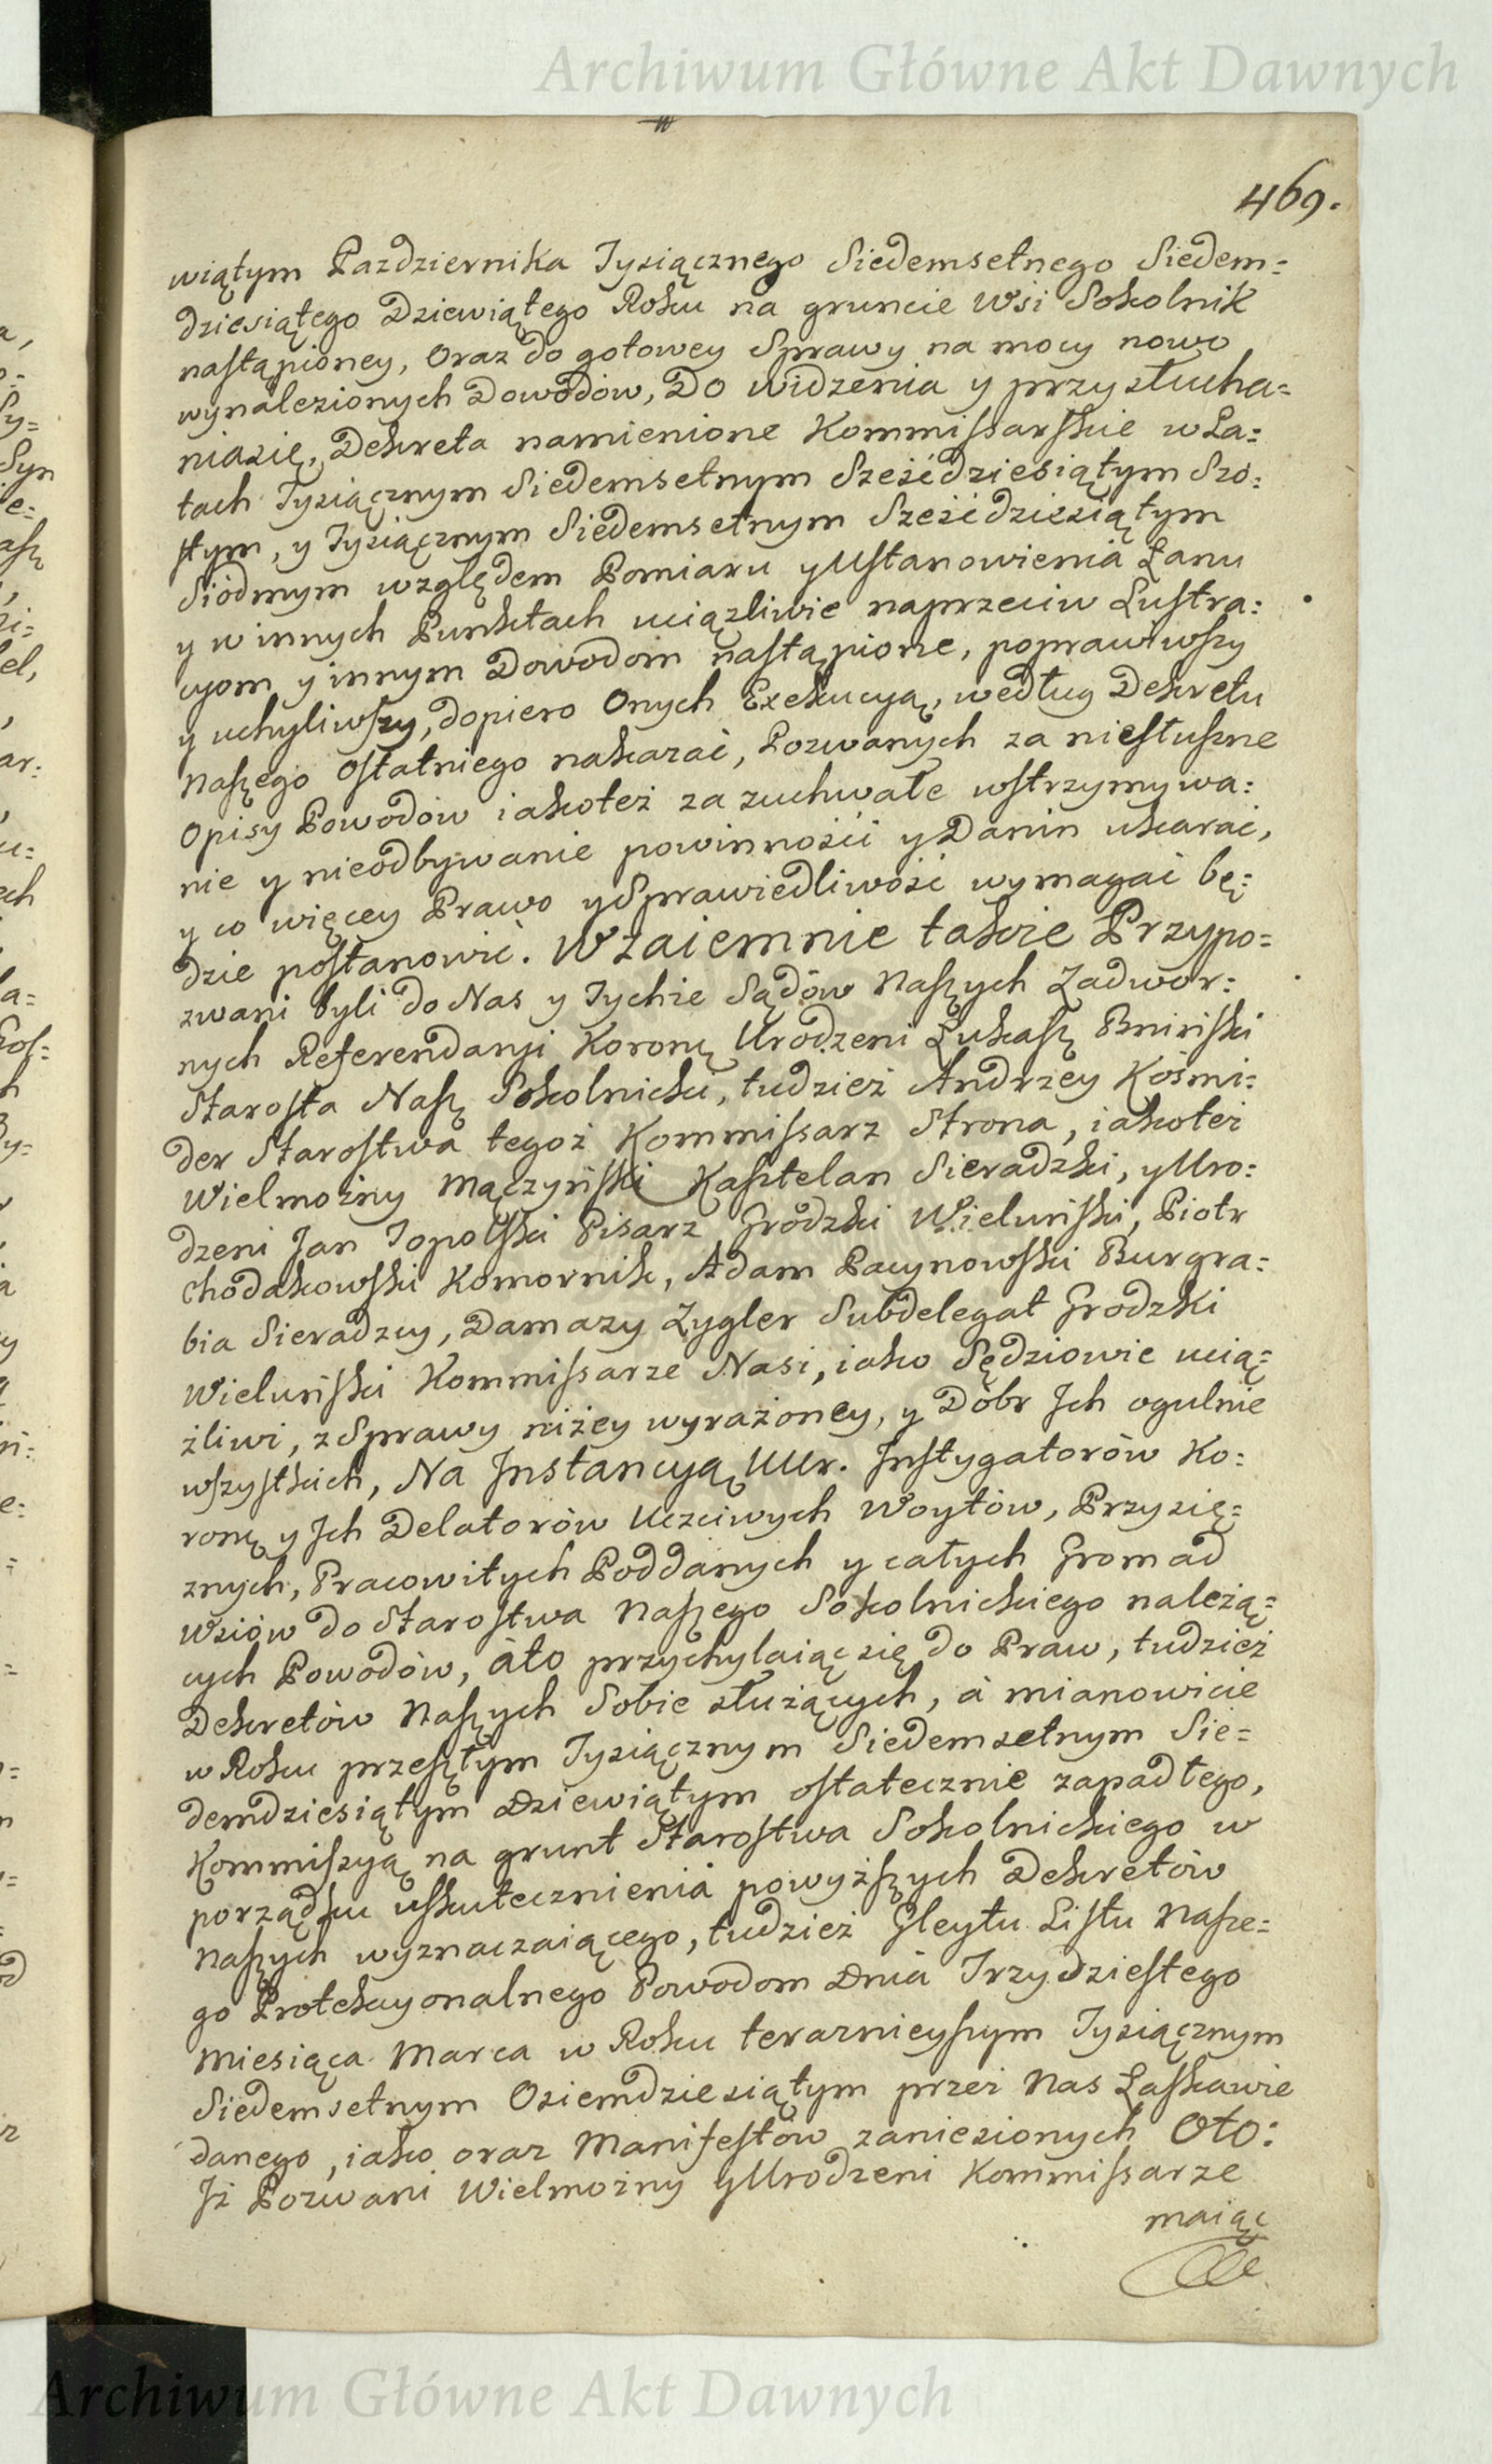 Archiwum Główne Akt Dawnych
469.
wiątym Pazdziernika Tysiącznego Siedemsetnego Siedem=
dziesiątego Dziewiątego Roku na gruncie Wsi Sokolnik
nastąpioney, Oraz do gotowey Sprawy na mocy nowo
wynalezionych Dowodów, Do widzenia y przysłucha=
niasię, Dekreta namienione Kommissarskie w La=
tach Tysiącznym Siedemsetnym Sześćdziesiątym Szo=
stym, y Tysiącznym Siedemsetnym Sześćdziesiątym
Siódmym względem Pomiaru y Ustanowienia Łanu
y w innych Punktach uciążliwie naprzeciw Lustra=
cyom y innym Dowodom nastąpione, poprawiwszy
y uchyliwszy, dopiero Onych Exekucyą, według Dekretu
Naszego ostatniego nakazać, Pozwanych za niesłuszne
Opisy Powodów iakoteż za zuchwałe wstrzymywa=
nie y nieodbywanie powinności y Danin ukarać,
y co więcey Prawo y Sprawiedliwość wymagać bę=
dzie postanowić. Wzaiemnie także Przypo=
zwani byli do Nas y Tychże Sądów Naszych Zadwor=
nych Referendaryi Koronę Urodzeni Łukasz Bniński
Starosta Nasz Sokolnicki, tudzież Andrzey Kośmi=
der Starostwa tegoż Kommissarz Strona, iakoteż
Wielmożny Mączyński Kasztelan Sieradzki, y Uro=
dzeni Jan Topolski Pisarz Grodzki Wieluński, Piotr
Chodakowski Komornik, Adam Pacynowski Burgra=
bia Sieradzcy, Damazy Zygler Subdelegat Grodzki
Wieluński Kommissarze Nasi, iako Sędziowie ucią=
żliwi, z Sprawy niżey wyrażoney, y Dóbr Ich ogulnie
wszystkich, Na Instancyą UUr. Instygatorów Ko=
ronę y Ich Delatorów Uczciwych Woytów, Przysię=
znych, Pracowitych Poddanych y całych Gromad
Wsiów do Starostwa Naszego Sokolnickiego należą=
cych Powodów, àto przychylaiąc się do Praw, tudzież
Dekretów Naszych Sobie służących, à mianowicie
w Roku przeszłym Tysiącznym Siedemsetnym Sie=
demdziesiątym Dziewiątym ostatecznie zapadłego,
Kommiszyą na grunt Starostwa Sokolnickiego w
porządku uskutecznienia powyższych Dekretów
Naszych wyznaczaiącego, tudzież Gleytu Listu Nasze=
go Protekcyonalnego Powodom Dnia Trzydziestego
Miesiąca Marca w Roku teraznieyszym Tysiącznym
Siedemsetnym Osiemdziesiątym przez Nas Łaskawie
danego, iako oraz Manifestów zaniesionych Oto:
Iż Pozwani Wielmożny y Urodzeni Kommissarze
maiąc
Archiwum Główne Akt Dawnych